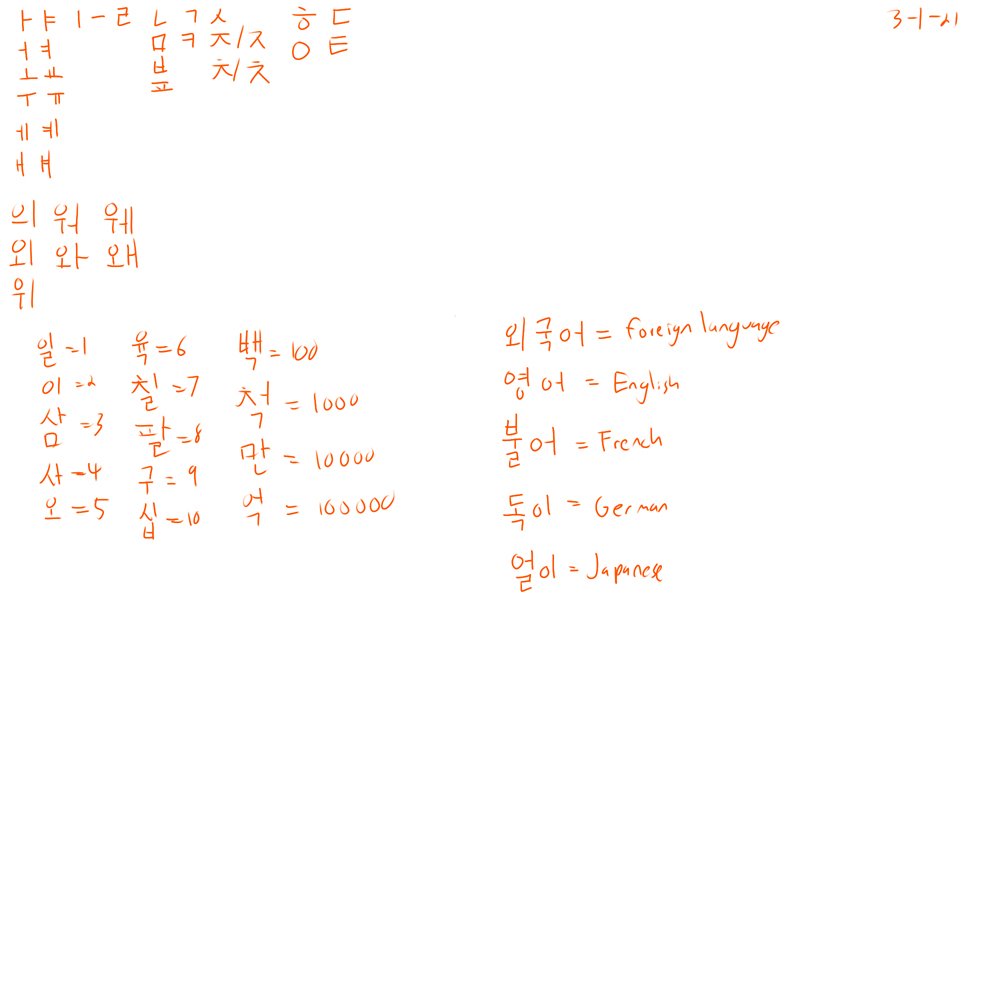 ㅏ ㅑ ㅣ ㅡ ㄹ ㄴ ㄱ ㅅ ㅎ ㄷ 3-1-21
ㅓ ㅕ ㅁ ㅋ ㅈ/ㅈ ㅇ ㅌ
ㅗ ㅛ ㅂ ㅊ/ㅊ
ㅜ ㅠ ㅍ
ㅔ ㅖ
ㅐ ㅒ
의 워 웨
외 와 왜
위
일 = 1
이 = 2
삼 = 3
사 = 4
오 = 5
육 = 6
칠 = 7
팔 = 8
구 = 9
십 = 10
백 = 100
척 = 1000
만 = 10000
억 = 100000
외국어 = Foreign language
영어 = English
불어 = French
독이 = German
얼이 = Japanese